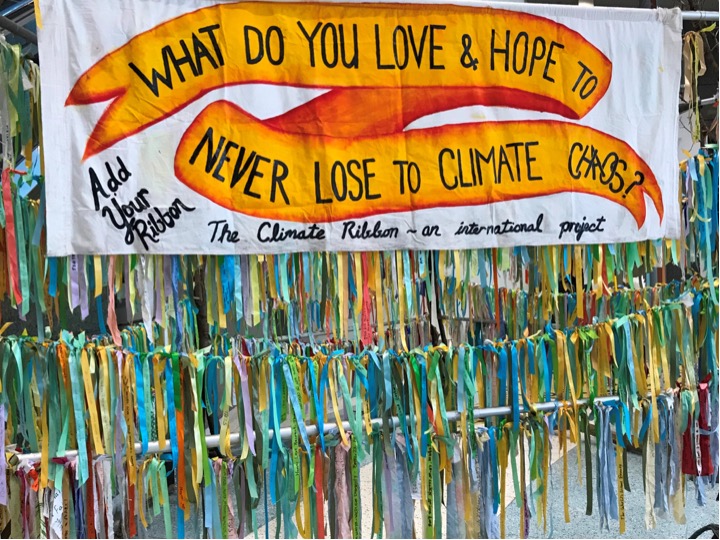 WHAT DO YOU LOVE & HOPE TO
NEVER LOSE TO CLIMATE CHAOS?
Add
Your
Ribbon
The Climate Ribbon ~ an international project